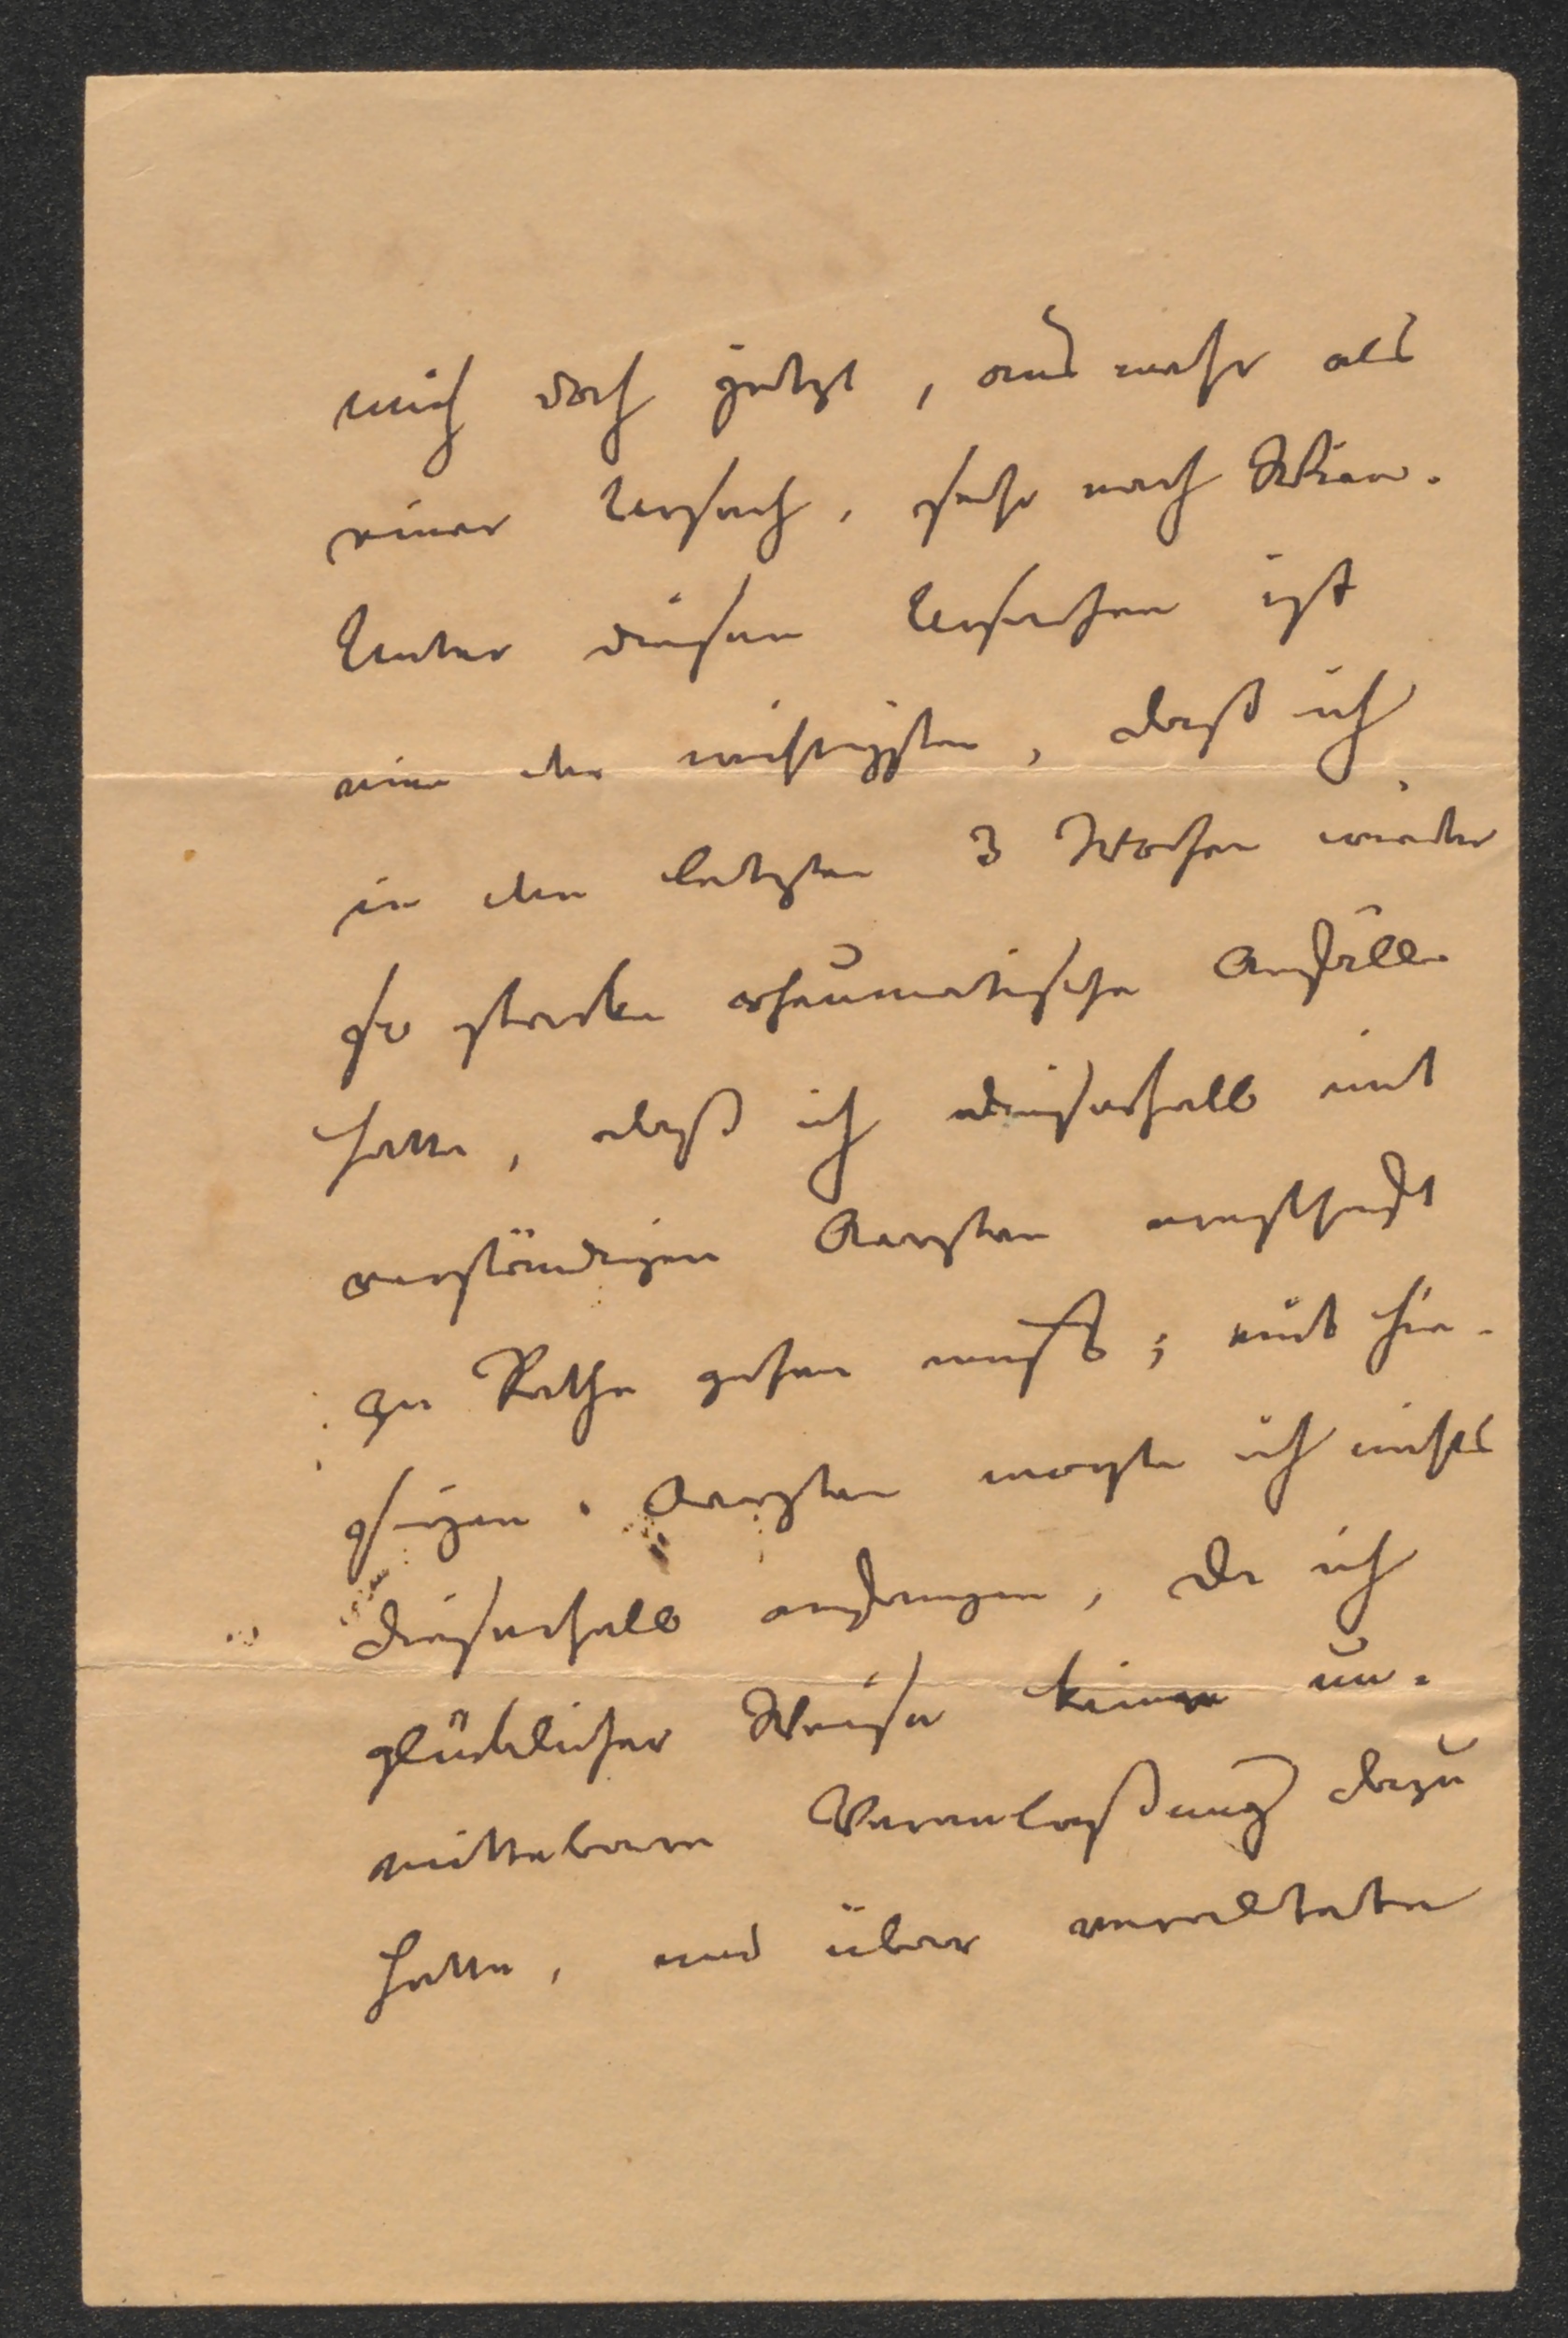 mich doch jetzt, aus mehr als
einer Ursach, sehr nach Wien.
Unter diesen Ursachen ist
eine der wichtigsten, daß ich
in den letzten 3 Wochen wieder
so starke rheumatische Anfälle
hatte, daß ich dieserhalb mit
verständigen Aerzten ernsthaft
zu Rathe gehen muß; mit hie-
sigen Aerzten mogte ich nichts
dieserhalb anfangen, da ich
glücklicher Weise keine un-
mittelbare Veranlaßung dazu
hatte, und über veraltete